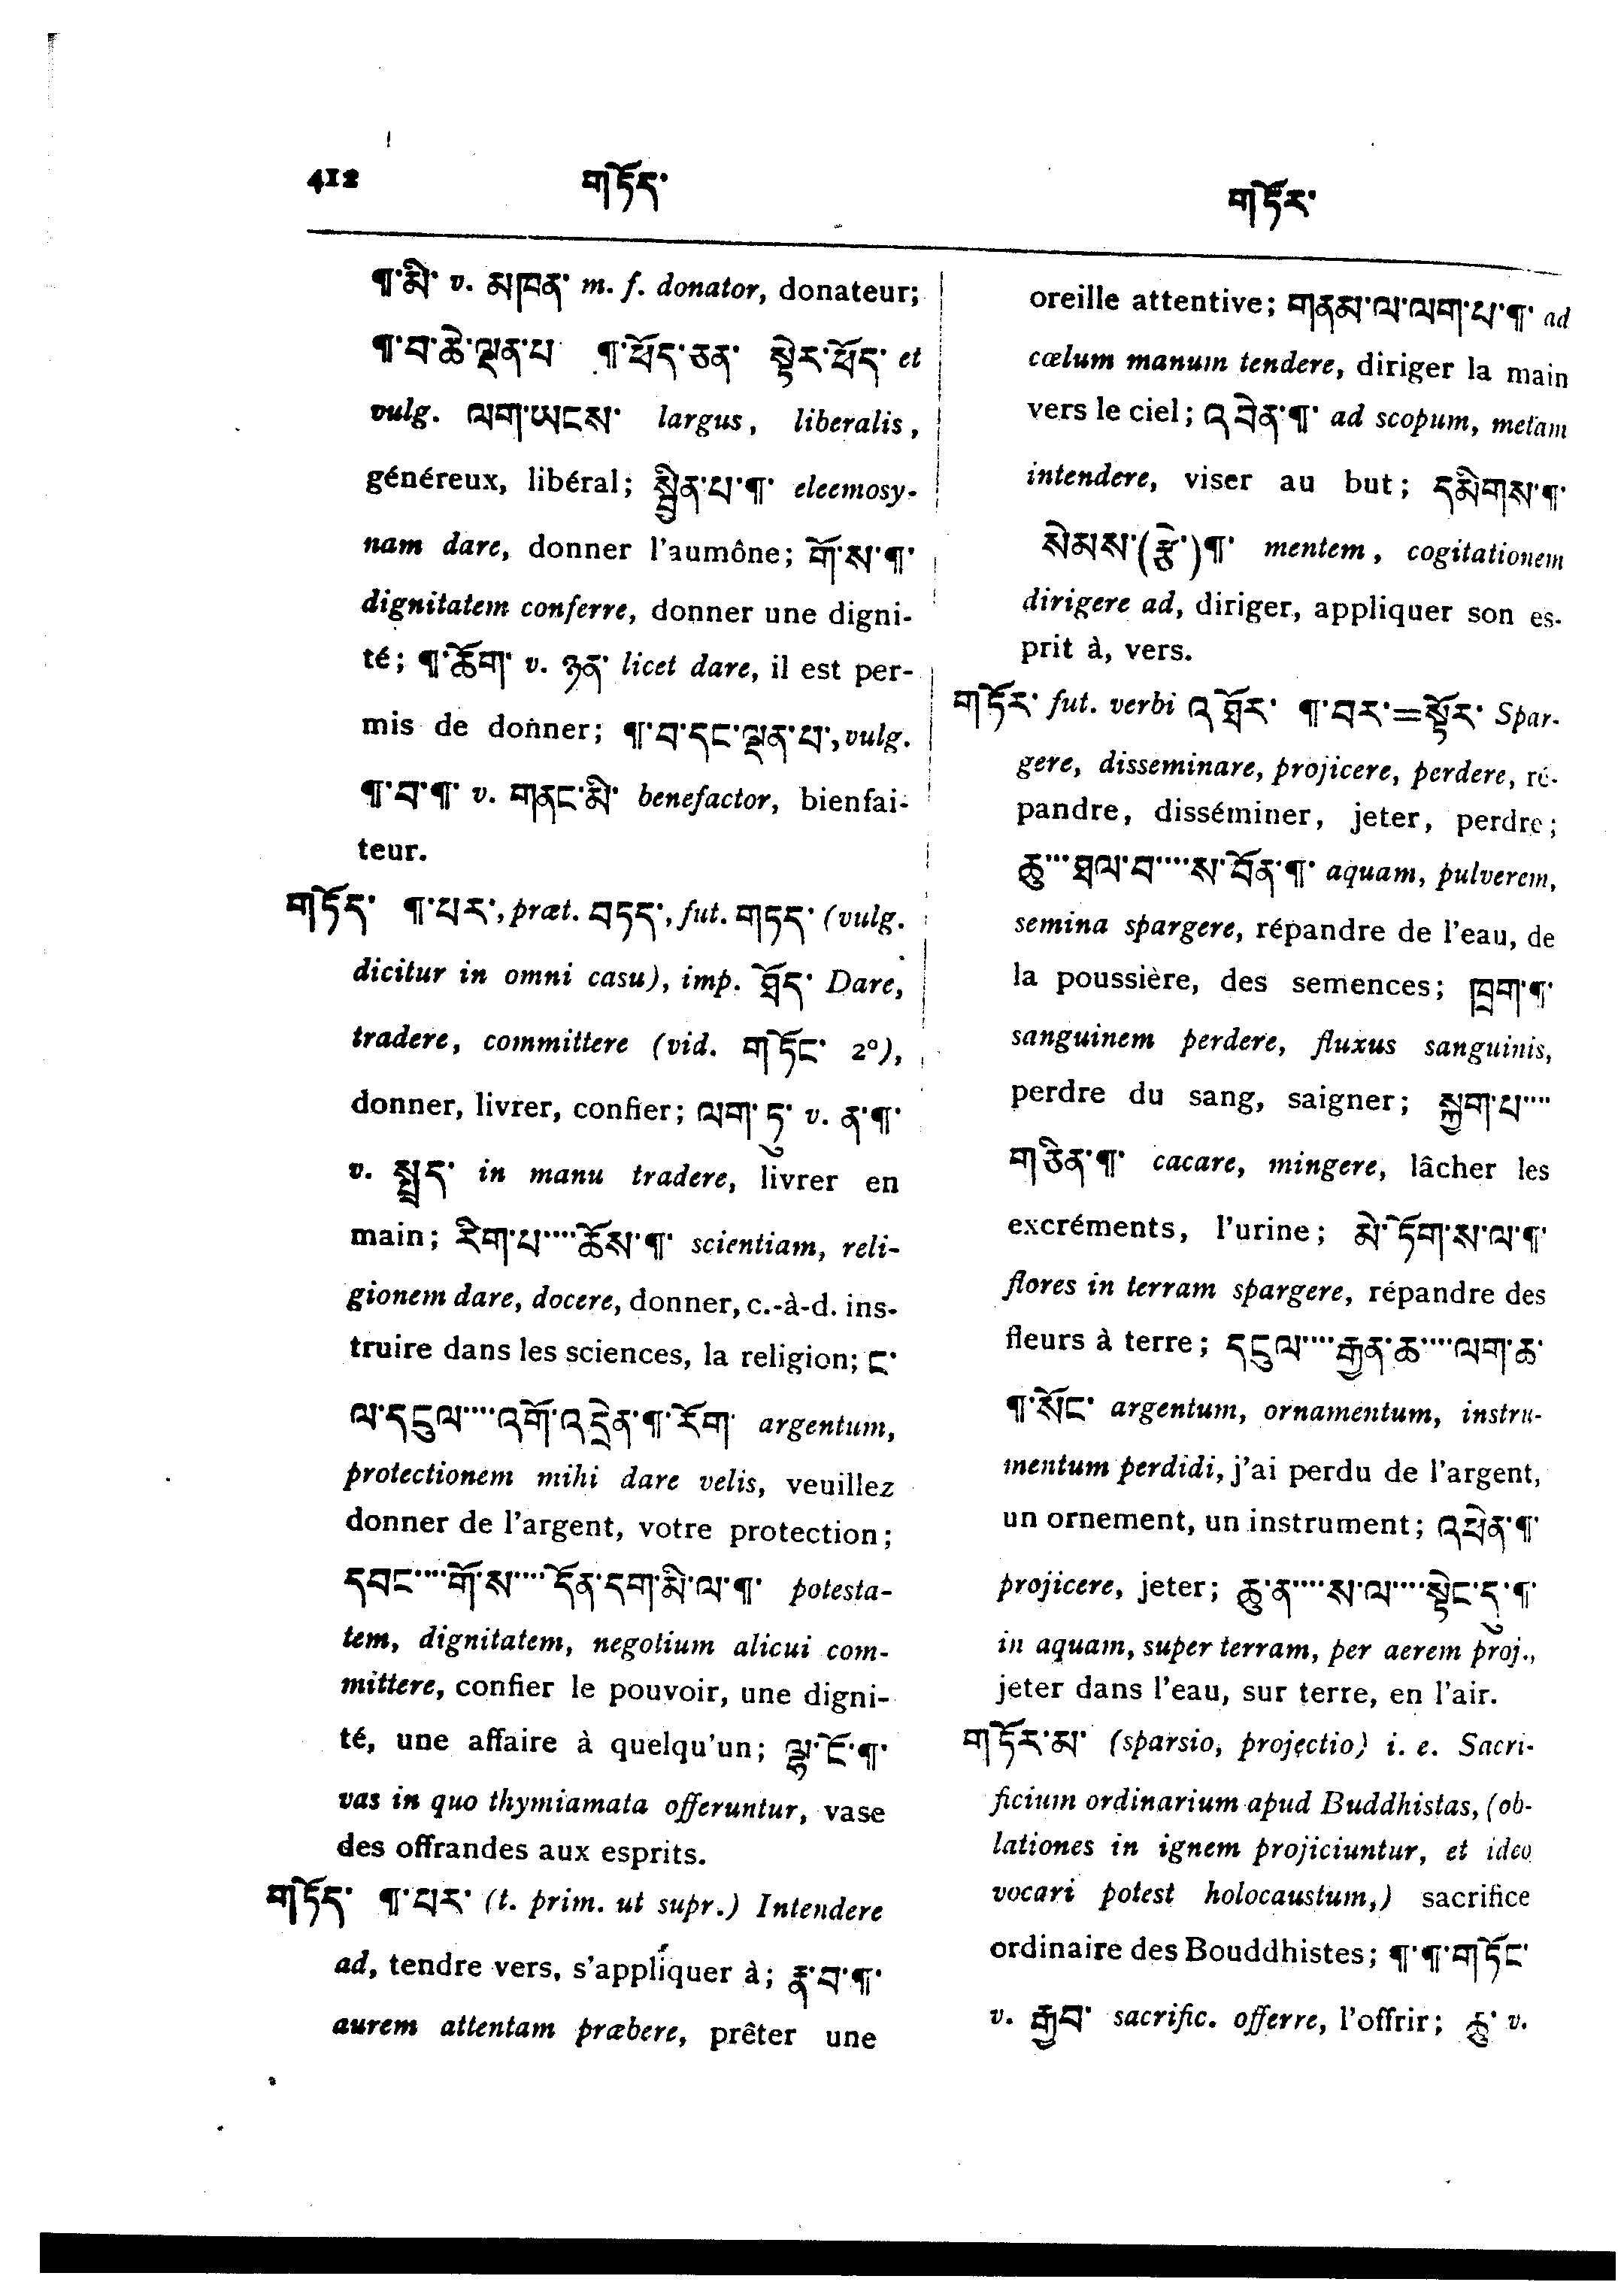 412
གཏོད་
གཏོར་
¶་མི་ v. མཁན་ m. f. donator, donateur;
¶་བ་ཆེ་ལྡན་པ ¶་ཕོད་ཅན་ སྟེར་ཕོད་ et
vulg. ལག་ཡངས་ largus, liberalis,
généreux, libéral; སྦྱིན་པ་¶་ eleemosy-
nam dare, donner l'aumône; གོ་ས་¶་
dignitatem conferre, donner une digni-
té; ¶་ཆོག་ v. ཉན་ licet dare, il est per-
mis de donner; ¶་བ་དང་ལྡན་པ་, vulg.
¶་བ་¶་ v. གནང་མི་ benefactor, bienfai-
teur.
གཏོད་ ¶་པར་, præt. བཏད་, fut. གཏད་ (vulg.
dicitur in omni casu), imp. ཐོད་ Dare,
tradere, committere (vid. གཏོང་ 2º),
donner, livrer, confier; ལག་ཏུ་ v. ན་¶་
v. སྤྲད་ in manu tradere, livrer en
main; རིག་པ་····ཆོས་¶་ scientiam, reli-
gionem dare, docere, donner, c.-à-d. ins-
truire dans les sciences, la religion; ང་
ལ་དངུལ་····འགོ་འདྲེན་¶་རོག་ argentum,
protectionem mihi dare velis, veuillez
donner de l'argent, votre protection;
དབང་····གོ་ས་····དོན་དག་མི་ལ་¶་ potesta-
tem, dignitatem, negotium alicui com-
mittere, confier le pouvoir, une digni-
té, une affaire à quelqu'un; ལྷ་ངོ་¶་
vas in quo thymiamata offeruntur, vase
des offrandes aux esprits.
གཏོད་ ¶་པར་ (t. prim. ut supr.) Intendere
ad, tendre vers, s'appliquer à; རྣ་བ་¶་
aurem attentam præbere, prêter une
oreille attentive; གནམ་ལ་ལག་པ་¶་ ad
cœlum manum tendere, diriger la main
vers le ciel; འབེན་¶་ ad scopum, metam
intendere, viser au but; དམིགས་¶་
སེམས་(རྩེ་)¶་ mentem, cogitationem
dirigere ad, diriger, appliquer son es-
prit à, vers.
གཏོར་ fut. verbi འཐོར་ ¶་བར་=སྟོར་ Spar-
gere, disseminare, projicere, perdere, ré-
pandre, disséminer, jeter, perdre;
ཆུ་···ཐལ་བ་····ས་བོན་¶་ aquam, pulverem,
semina spargere, répandre de l'eau, de
la poussière, des semences; ཁྲག་¶་
sanguinem perdere, fluxus sanguinis,
perdre du sang, saigner; སྐྱག་པ་····
གཅིན་¶་ cacare, mingere, lâcher les
excréments, l'urine; མེ་ཏོག་ས་ལ་¶་
flores in terram spargere, répandre des
fleurs à terre; དངུལ་····རྒྱན་ཆ་····ལག་ཆ་
¶་སོང་ argentum, ornamentum, instru-
mentum perdidi, j'ai perdu de l'argent,
un ornement, un instrument; འཕེན་¶་
projicere, jeter; ཆུ་ན་····ས་ལ་····སྟེང་དུ་¶་
in aquam, super terram, per aerem proj.,
jeter dans l'eau, sur terre, en l'air.
གཏོར་མ་ (sparsio, projectio) i. e. Sacri-
ficium ordinarium apud Buddhistas, (ob-
lationes in ignem projiciuntur, et ideo
vocari potest holocaustum,) sacrifice
ordinaire des Bouddhistes; ¶་¶་གཏོང་
v. རྒྱབ་ sacrific. offerre, l'offrir; ཆུ་ v.